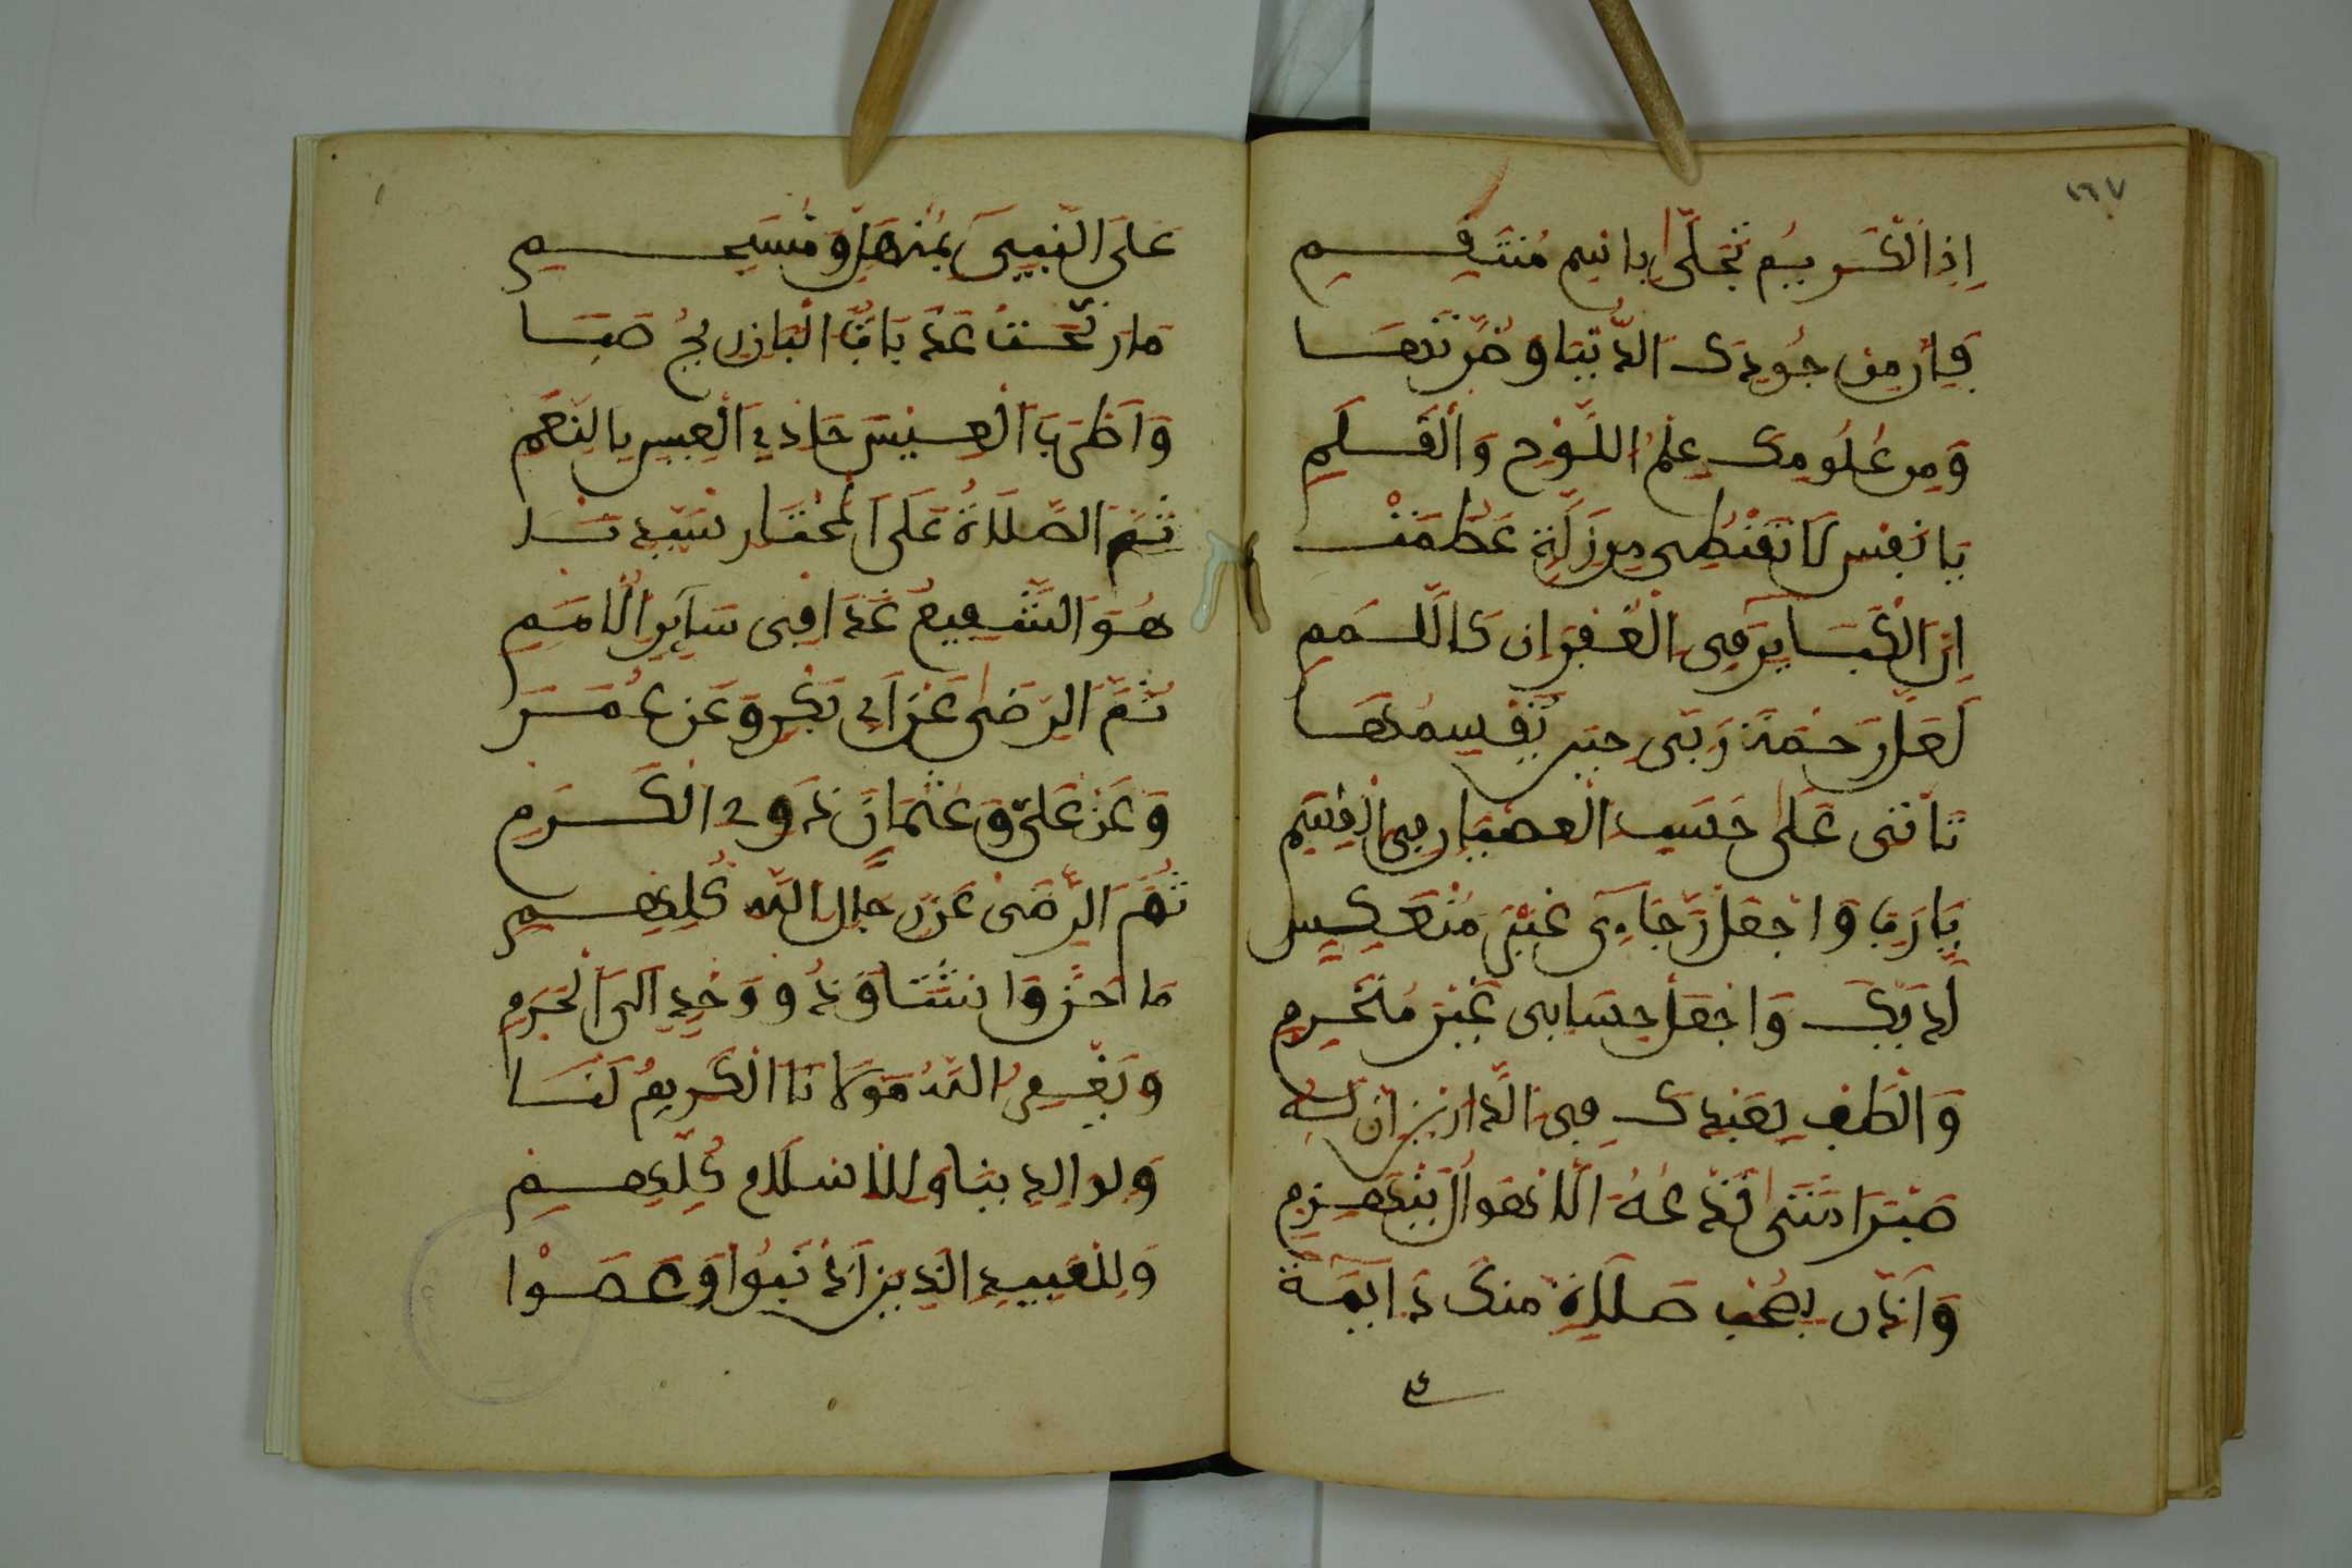 ١٦٧
إِذَا الْكَرِيمُ تَجَلَّى بِاسْمِ مُنتَقِمِ
فَإِنَّ مِن جُودِكَ الدُّنْيَا وَضَرَّتَهَا
وَمِن عُلُومِكَ عِلْمُ اللَّوْحِ وَالْقَلَمِ
يَا نَفْسُ لَا تَقْنُطِي مِن زَلَّةٍ عَظُمَتْ
إِنَّ الْكَبَائِرَ فِي الْغُفْرَانِ كَاللَّمَمِ
لَعَلَّ رَحْمَةَ رَبِّي حِينَ يَقْسِمُهَا
تَاتِي عَلَى حَسَبِ الْعِصْيَانِ فِي الْقِسَمِ
يَا رَبِّ وَاجْعَلْ رَجَاءِي غَيْرَ مُنْعَكِسٍ
لَدَيْكَ وَاجْعَلْ حِسَابِي غَيْرَ مُنْخَرِمِ
وَالْطُفْ بِعَبْدِكَ فِي الدَّارَيْنِ إِنَّ لَهُ
صَبْرًا مَتَى تَدْعُهُ الْأَهْوَالُ يَنْهَزِمِ
وَأْذَن بِسُحْبِ صَلَاةٍ مِنكَ دَايِمَةً
عَلَى النَّبِيِّ بِمُنْهَلٍّ وَمُنسَجِمِ
مَا رَنَّحَتْ عَذَبَاتِ الْبَانِ رِيحُ صَبَا
وَأَطْرَبَ الْعِيسَ حَادِي الْعِيسِ بِالنَّغَمِ
ثُمَّ الصَّلَاةُ عَلَى الْمُخْتَارِ سَيِّدِنَا
هُوَ الشَّفِيعُ غَدًا فِي سَايِرِ الْأُمَمِ
ثُمَّ الرِّضَى عَنْ أَبِي بَكْرٍ وَعَن عُمَرَ
وَعَنْ عَلِيٍّ وَعُثْمَانَ ذَوِي الْكَرَمِ
ثُمَّ الرِّضَى عَن رِجَالِ اللَّهِ كُلِّهِمِ
مَا حَنَّ وَاشْتَاقَ ذُو وَجْدٍ إِلَى الْحَرَمِ
وَيَغْفِرُ اللَّهُ مَوْلَانَا الْكَرِيمُ لَنَا
وَلِوَالِدِينَا وَلِلْإِسْلَامِ كُلِّهِمِ
وَلِلْعَبِيدِ الَّذِينَ أَذْنَبُوا وَعَصَوْا